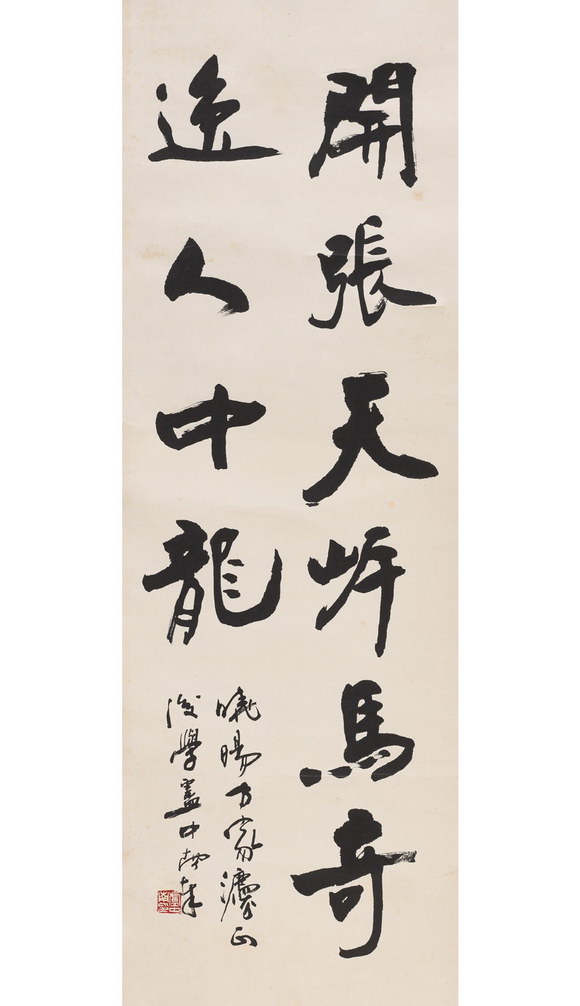 開張天岸馬奇
逸人中龍
曉暘方家灋正
後學盧中南